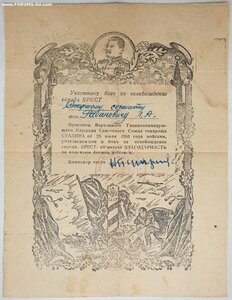 www.FORUMS-SU.com
Участнику боев за освобождение
города БРЕСТ
Старшему сержанту
тов. Рабиновичу
Приказом Верховного Главнокомандующего
Маршала Советского Союза товарища
СТАЛИНА от 28 июля 1944 года войскам,
участвовавшим в боях за освобождение
города БРЕСТ, объявлена БЛАГОДАРНОСТЬ
за отличные боевые действия.
Командир части